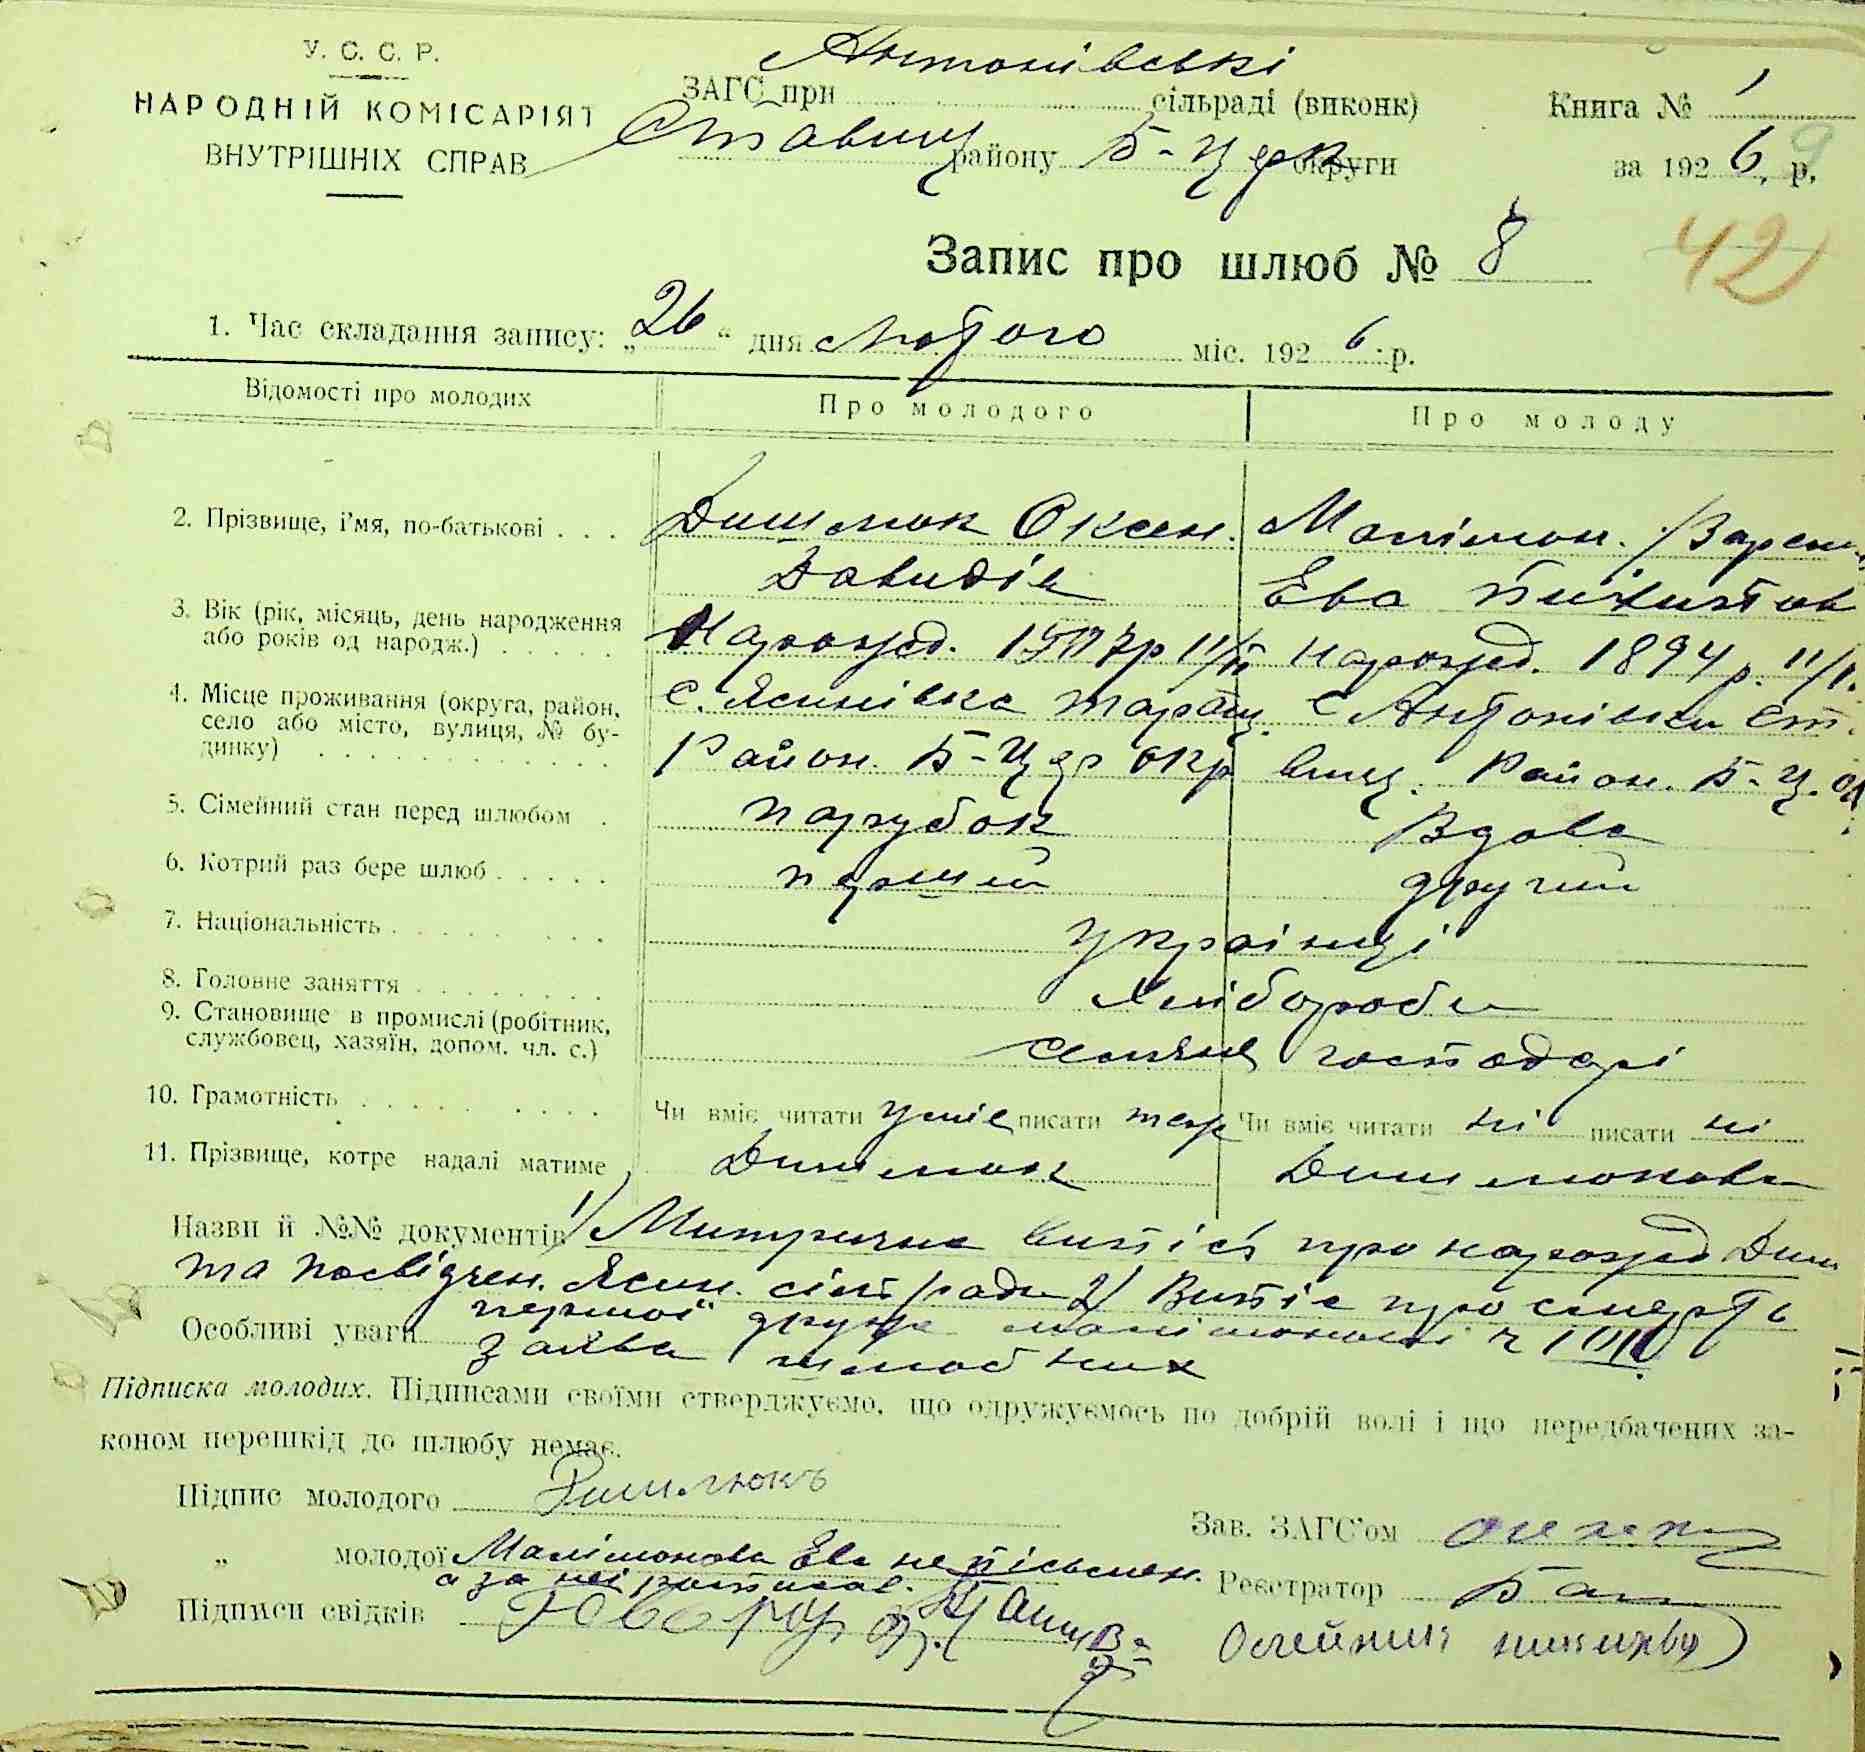 У. С. С. Р.
НАРОДНІЙ КОМІСАРІЯТ
ВНУТРІШНІХ СПРАВ
Антонівські
ЗАГС при сільраді (виконк)
Ставищ району Б-Церк округи
Книга № 1
за 1926, р,
9
Запис про шлюб № 8
42
1. Час складання запису: „26“ дня Лютого міс. 1926 р.
Відомості про молодих
Про молодого
Про молоду
2. Прізвище, і'мя, по-батькові . . . Дишлюк Оксен. Малімон.
Давидів Ева
3. Вік (рік, місяць, день народження Народжд. р 11/ІІ народжд. 1894 р. 11/І.
або років од народж.) . . . . .
4. Місце проживання (округа, район, с. Ясинівка Таращ. с Антонівки Ст.
село або місто, вулиця, № бу- Район. Б-Цер окр вищ. Район. Б-Ц. ок
динку) . . . . . . . . . . . .
5. Сімейний стан перед шлюбом . парубок Вдова
6. Котрий раз бере шлюб . . . . . перший другий
7. Національність . . . . . . . Українці
8. Головне заняття . . . . . . . . Хлібороби
9. Становище в промислі (робітник,
службовец, хазяїн, допом. чл. с.) господарі
10. Грамотність . . . . . . . . . Чи вміє читати уміє писати теж Чи вміє читати ні писати ні
11. Прізвище, котре надалі матиме Дишлюк Дишлюкова
Назви й №№ документів 1/ Митрична випісь про народжд Диш
та посвідчен. Ясин. сілради 2/ Випіс про смерть
Особливі уваги першої
заява шлюбних
Підписка молодих. Підписами своїми стверджуємо, що одружуємось по добрій волі і що передбачених за-
коном перешкід до шлюбу немає.
Підпис молодого Дишлюкъ
Зав. ЗАГС'ом
„ молодої Малімонова Ева не пісьмен.
а за неї росписав.
Реєстратор
Підписи свідків
Олейник